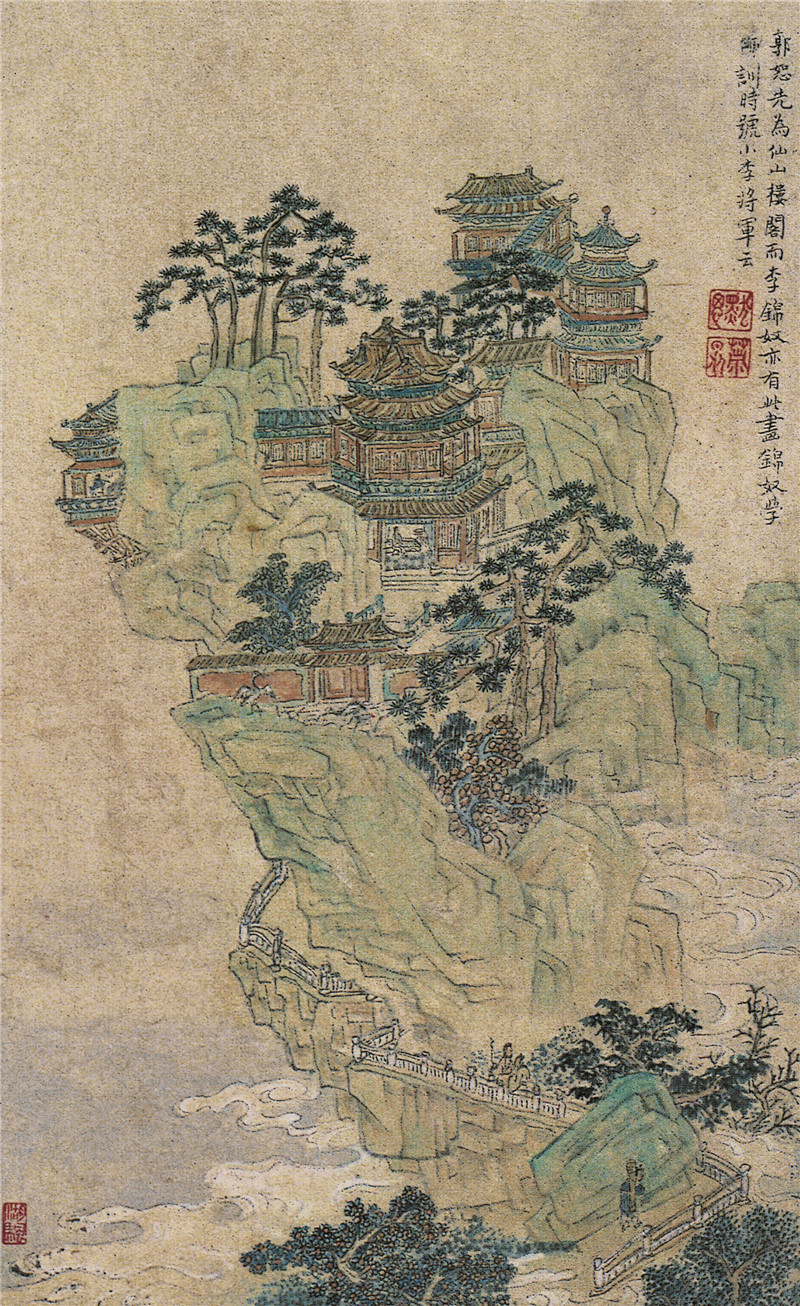 郭恕先為仙山樓閣而李錦奴亦有此畫錦奴學
訓時號小李將軍云